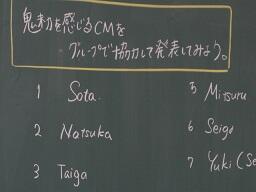 魅力を感じるCMを
グループで協力して発表してみよう。
1 Sota.
2 Natsuka
3 Taiga
5 Mitsuru
6 Seigo
7 Yuki (Se